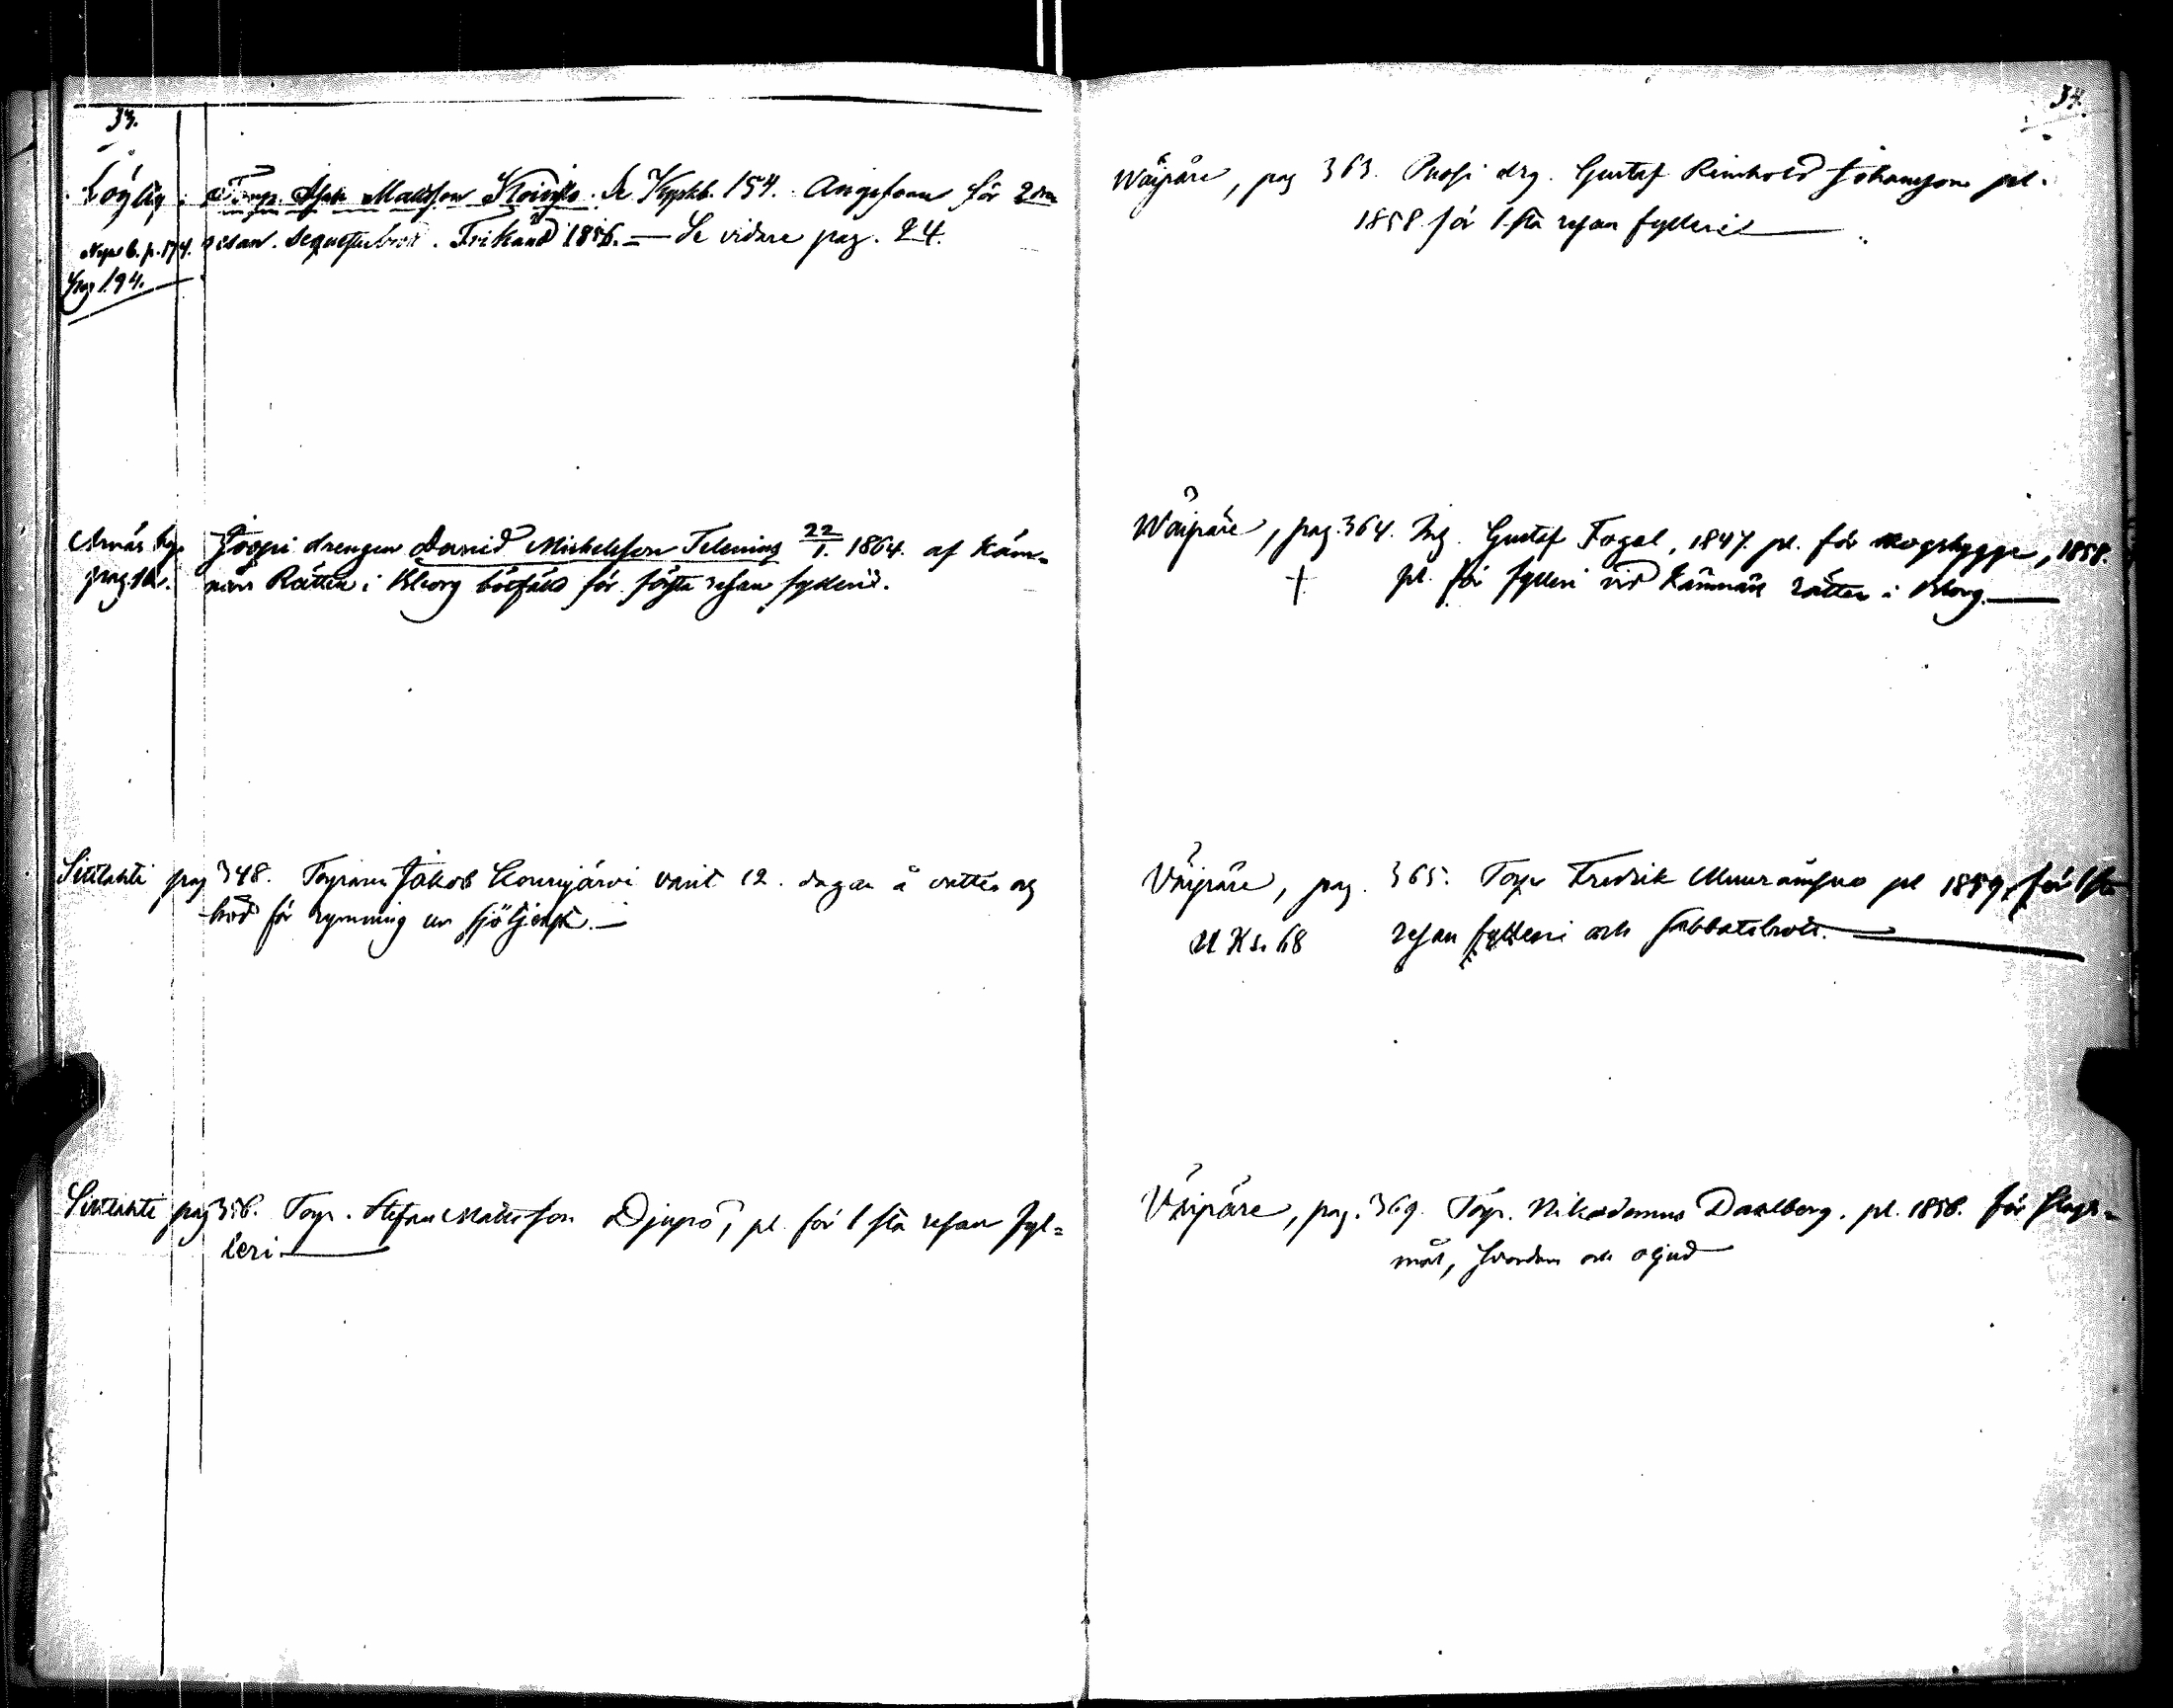 33.
Torp. Matsson Se Kyrkb. 154. Angifven för 2dra
resan. Frikänd 1856. — Se vidare pag. 24.
p. 174.
pag 194.
by Joopi drengen David Michelsson Telenius 22/1. 1864. af Käm-
pag. närs Rätten i Wborg bötfäld för första resan fylleri.
Sittlahti pag 348. Torparen Jakob Kounijärvi varit 12. dagar å vatten och
bröd för rymning ur
Sittlahti pag 356. Torp. Stefan Matsson Djupö, pl. för 1 sta resan fyl=
leri.
34.
Wäipäre, pag 363. drg. Gustaf Reinhold Johansson pl.
1858 för 1. sta resan fylleri
Wäipäre, pag. 364. Gustaf Fogel, 1847. pl. för skogshygge, 1858.
+ pl. för fylleri vid Kämnärs rätten i Wborg.
Väipäre, pag. 365. Torp. Fredrik pl 1859, för 1 sta
68 resan fylleri och sabbatsbrott.
Väipäre, pag. 369. Torp. Nikodemus Dahlberg. pl. 1856. för slags=
mål, svordom och oljud